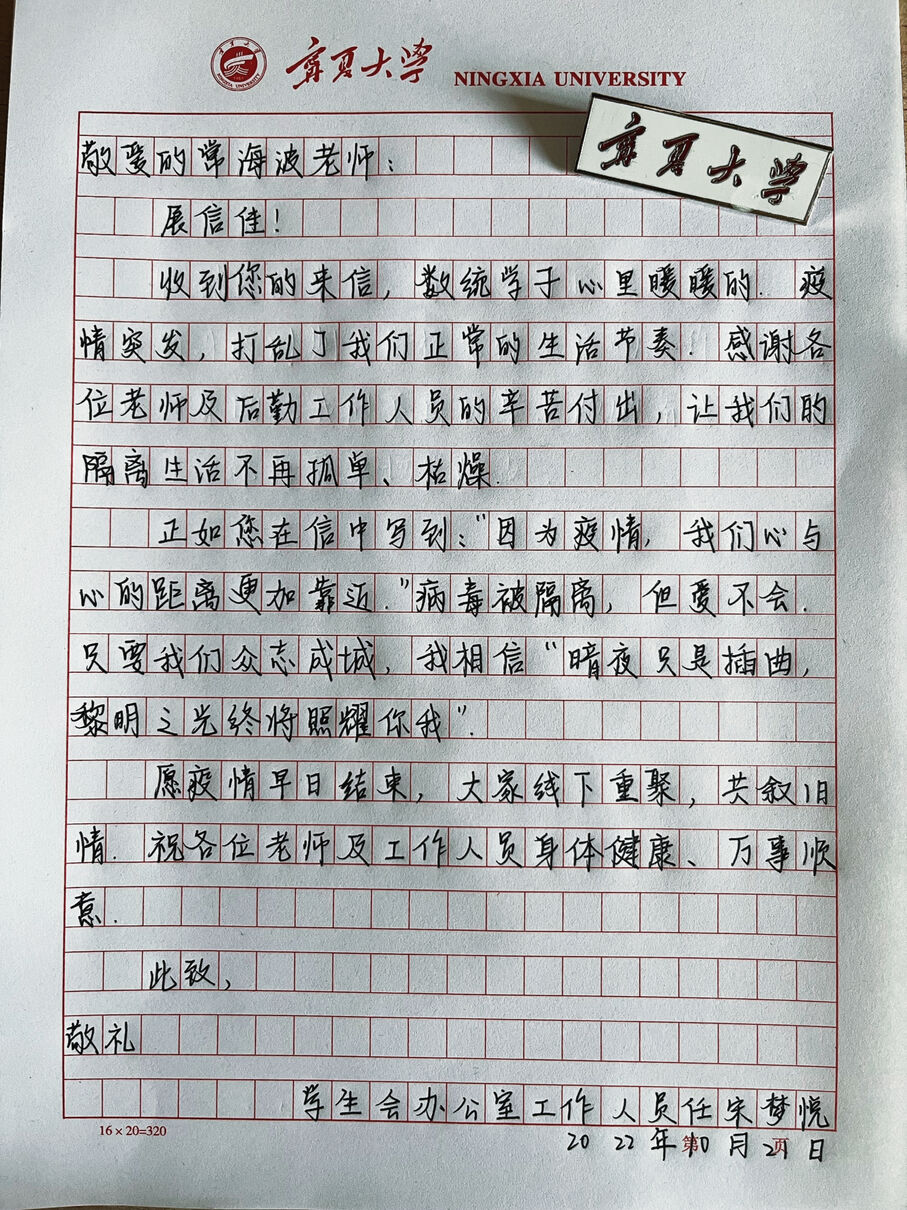 宁夏大学 NINGXIA UNIVERSITY
宁夏大学
敬爱的常海波老师：
展信佳！
收到您的来信，数统学子心里暖暖的．疫
情突发，打乱了我们正常的生活节奏．感谢各
位老师及后勤工作人员的辛苦付出，让我们的
隔离生活不再孤单、枯燥．
正如您在信中写到：“因为疫情，我们心与
心的距离更加靠近．”病毒被隔离，但爱不会．
只要我们众志成城，我相信“暗夜只是插曲，
黎明之光终将照耀你我”．
愿疫情早日结束，大家线下重聚，共叙旧
情．祝各位老师及工作人员身体健康、万事顺
意．
此致，
敬礼
学生会办公室工作人员任宋梦悦
16×20=320
第 页
2022年10月21日